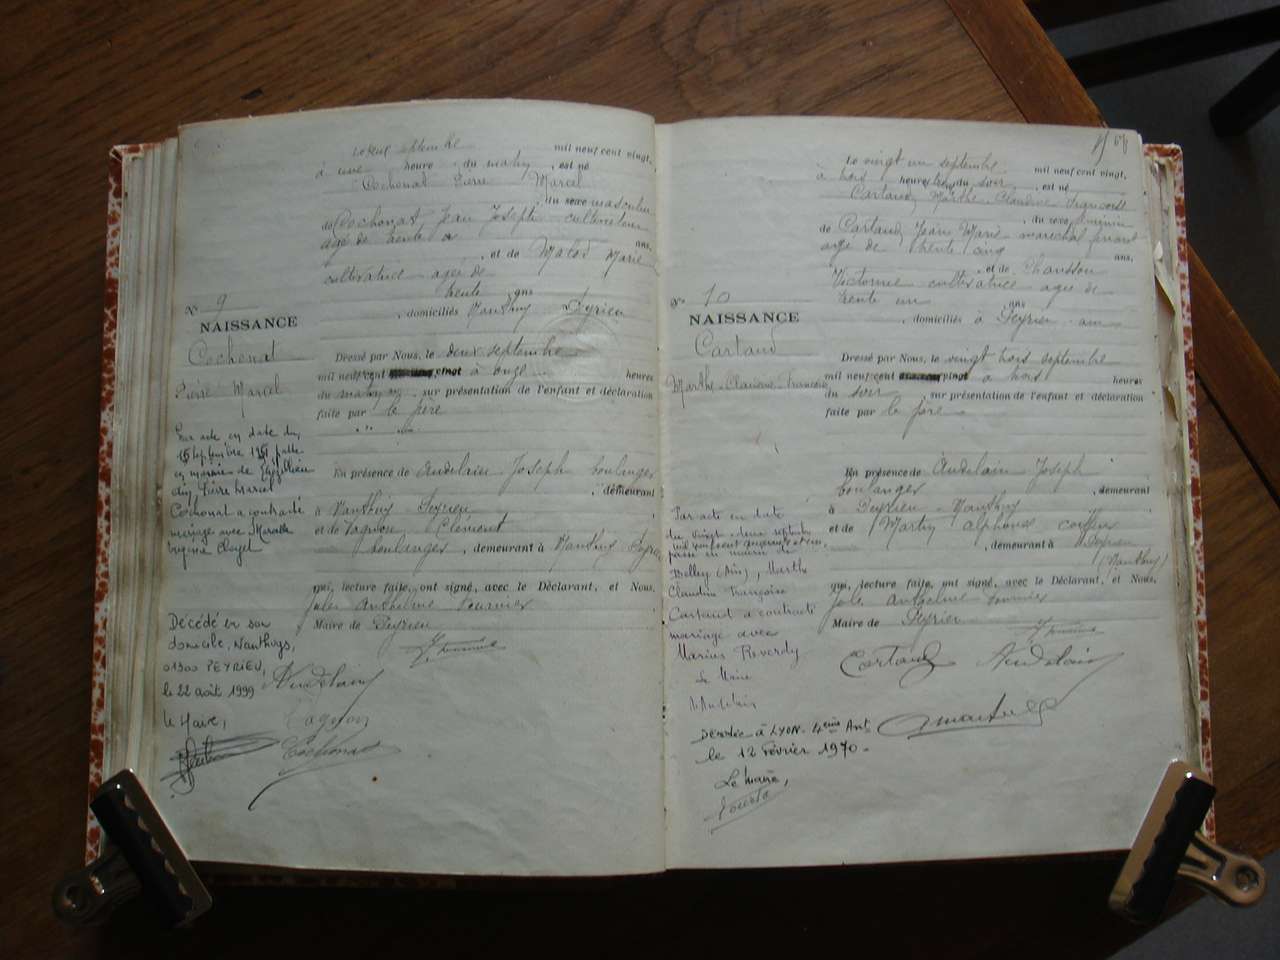 septembre mil neuf cent vingt,
à une heure du matin, est né
Cochonat Pierre Marcel
, du sexe masculin
de Cochonat Jean Joseph cultivateur
âgé de trente ans,
, et de Malod Marie
cultivatrice âgée de
trente ans
, domiciliés Nanthuy Peyrieu
N° 9
NAISSANCE
Cochonat
Pierre Marcel
Dressé par Nous, le deux septembre
mil neuf cent vingt à onze heures
du matin, sur présentation de l'enfant et déclaration
faite par le père
Par acte en date du
15 septembre 1951
en mairie de
Pierre Marcel
Cochonat a contracté
mariage avec
En présence de Andelain Joseph boulanger
, demeurant
à Nanthuy Peyrieu
et de Clément
boulanger, demeurant à Nanthuy Peyrieu
qui, lecture faite, ont signé, avec le Déclarant, et Nous,
Jules Anthelme Fournier
Maire de Peyrieu
Décédé en son
domicile, Nanthuys,
01300 PEYRIEU,
le 22 août 1999
Le Maire,
Andelain
Cochonat
Le vingt un septembre mil neuf cent vingt,
à trois heures du soir, est né
Cartaud Marthe Claudine Françoise
, du sexe féminin
de Cartaud Jean Marie maréchal ferrant
âgé de trente cinq ans,
, et de Chausson
Victorine cultivatrice âgée de
trente un ans
, domiciliés à Peyrieu
N° 10
NAISSANCE
Cartaud
Marthe Claudine Françoise
Dressé par Nous, le vingt trois septembre
mil neuf cent vingt à trois heures
du soir, sur présentation de l'enfant et déclaration
faite par le père
En présence de Andelain Joseph
boulanger, demeurant
à Peyrieu Nanthuy
et de Martin Alphonse
, demeurant à Peyrieu
(Nanthuy)
Par acte en date
du vingt deux septembre
mil neuf cent quarante
en mairie de
Belley (Ain), Marthe
Claudine Françoise
Cartaud a contracté
mariage avec
Marius Reverdy
Le Maire
Andelain
qui, lecture faite, ont signé, avec le Déclarant, et Nous,
Jules Anthelme Fournier
Maire de Peyrieu
Cartaud Andelain
Décédée à LYON. 4ème Art
le 12 Février 1970.
Le maire,